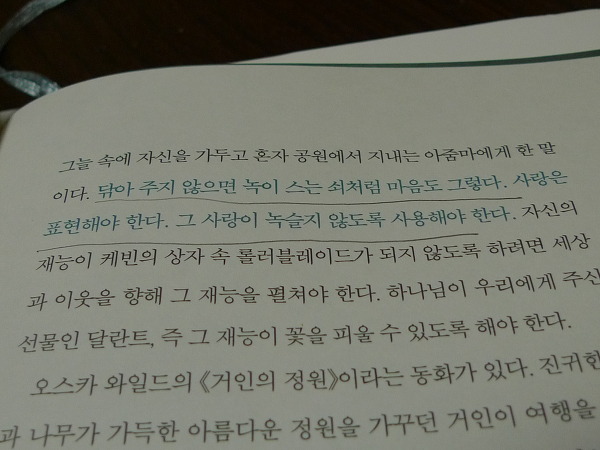 그늘 속에 자신을 가두고 혼자 공원에서 지내는 아줌마에게 한 말
이다. 닦아 주지 않으면 녹이 스는 쇠처럼 마음도 그렇다. 사랑은
표현해야 한다. 그 사랑이 녹슬지 않도록 사용해야 한다. 자신의
재능이 케빈의 상자 속 롤러블레이드가 되지 않도록 하려면 세상
과 이웃을 향해 그 재능을 펼쳐야 한다. 하나님이 우리에게 주신
선물인 달란트, 즉 그 재능이 꽃을 피울 수 있도록 해야 한다.
오스카 와일드의 《거인의 정원》이라는 동화가 있다. 진귀한
과 나무가 가득한 아름다운 정원을 가꾸던 거인이 여행을